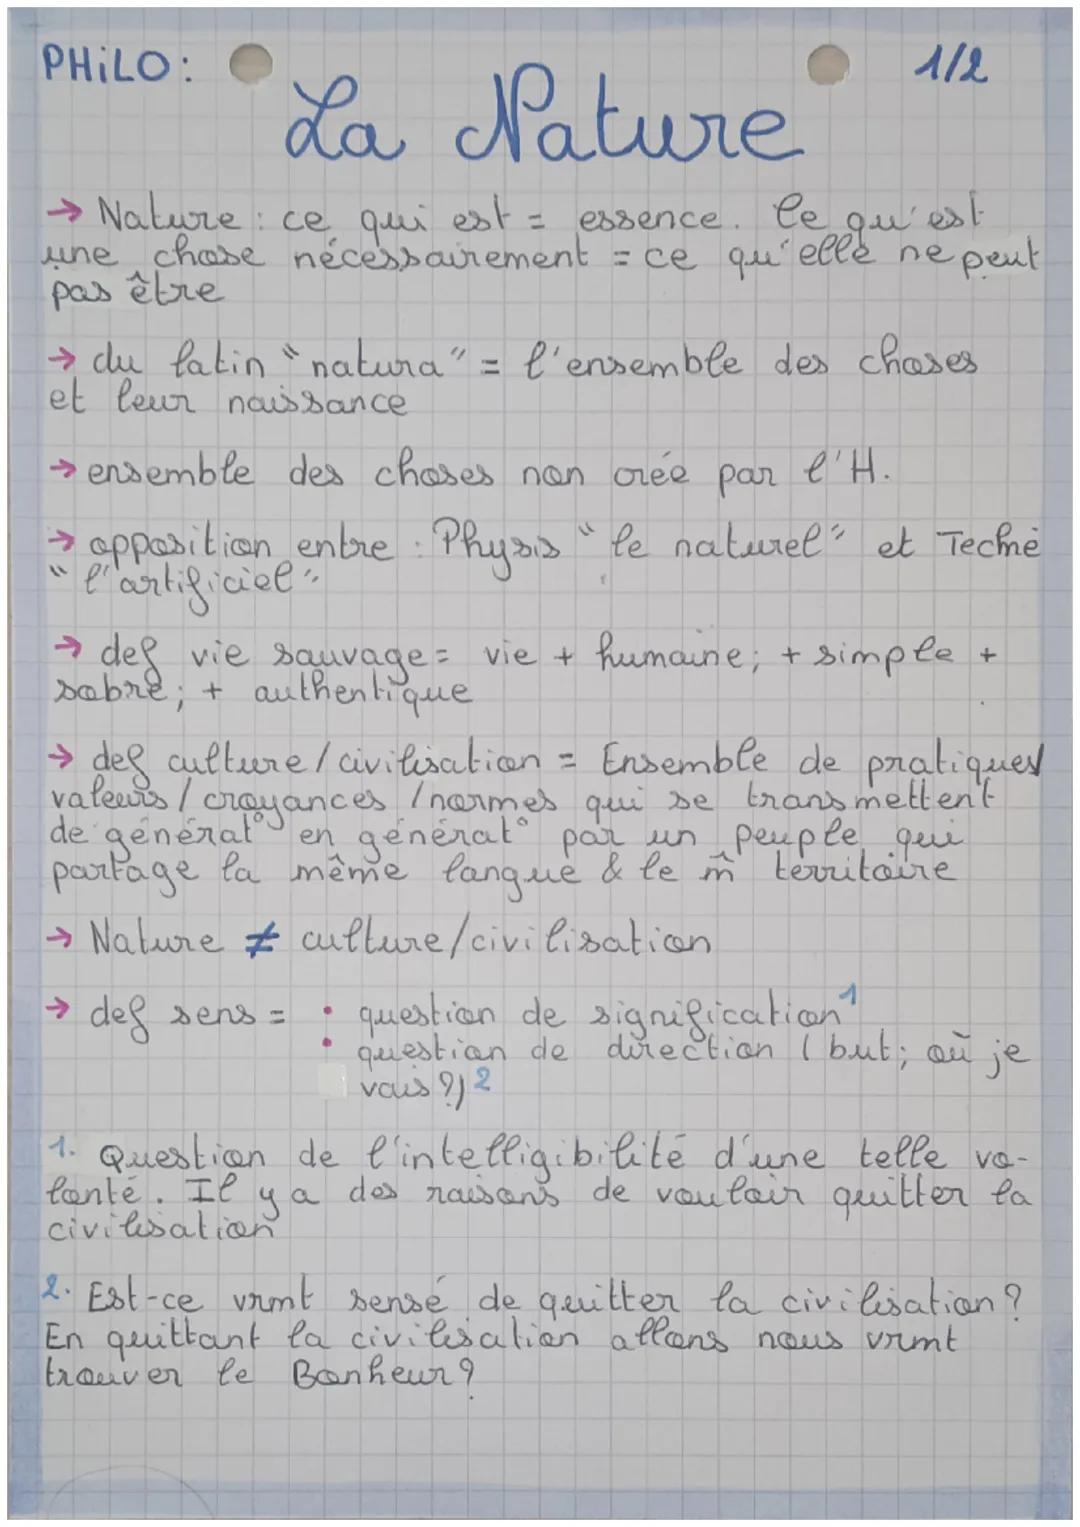 PHiLO:
1/2
La Nature
→ Nature : ce qui est = essence. Ce qu'est
une chose nécessairement = ce qu'elle ne peut
pas être
→ du latin "natura" = l'ensemble des choses
et leur naissance
→ ensemble des choses non crée par l'H.
→ opposition entre : Physis "le naturel" et Techné
"l'artificiel"
→ def vie sauvage = vie + humaine; + simple +
sobre; + authentique
→ def culture/civilisation = Ensemble de pratiques/
valeurs / croyances /normes qui se transmettent
de générat° en générat° par un peuple qui
partage la même langue & le m̂ territoire
→ Nature ≠ culture/civilisation
→ def sens = • question de signification¹
• question de direction (but; où je
vais ?)²
1. Question de l'intelligibilité d'une telle vo-
lonté. Il y a des raisons de vouloir quitter la
civilisation
2. Est-ce vrmt sensé de quitter la civilisation ?
En quittant la civilisation allons nous vrmt
trouver le Bonheur ?